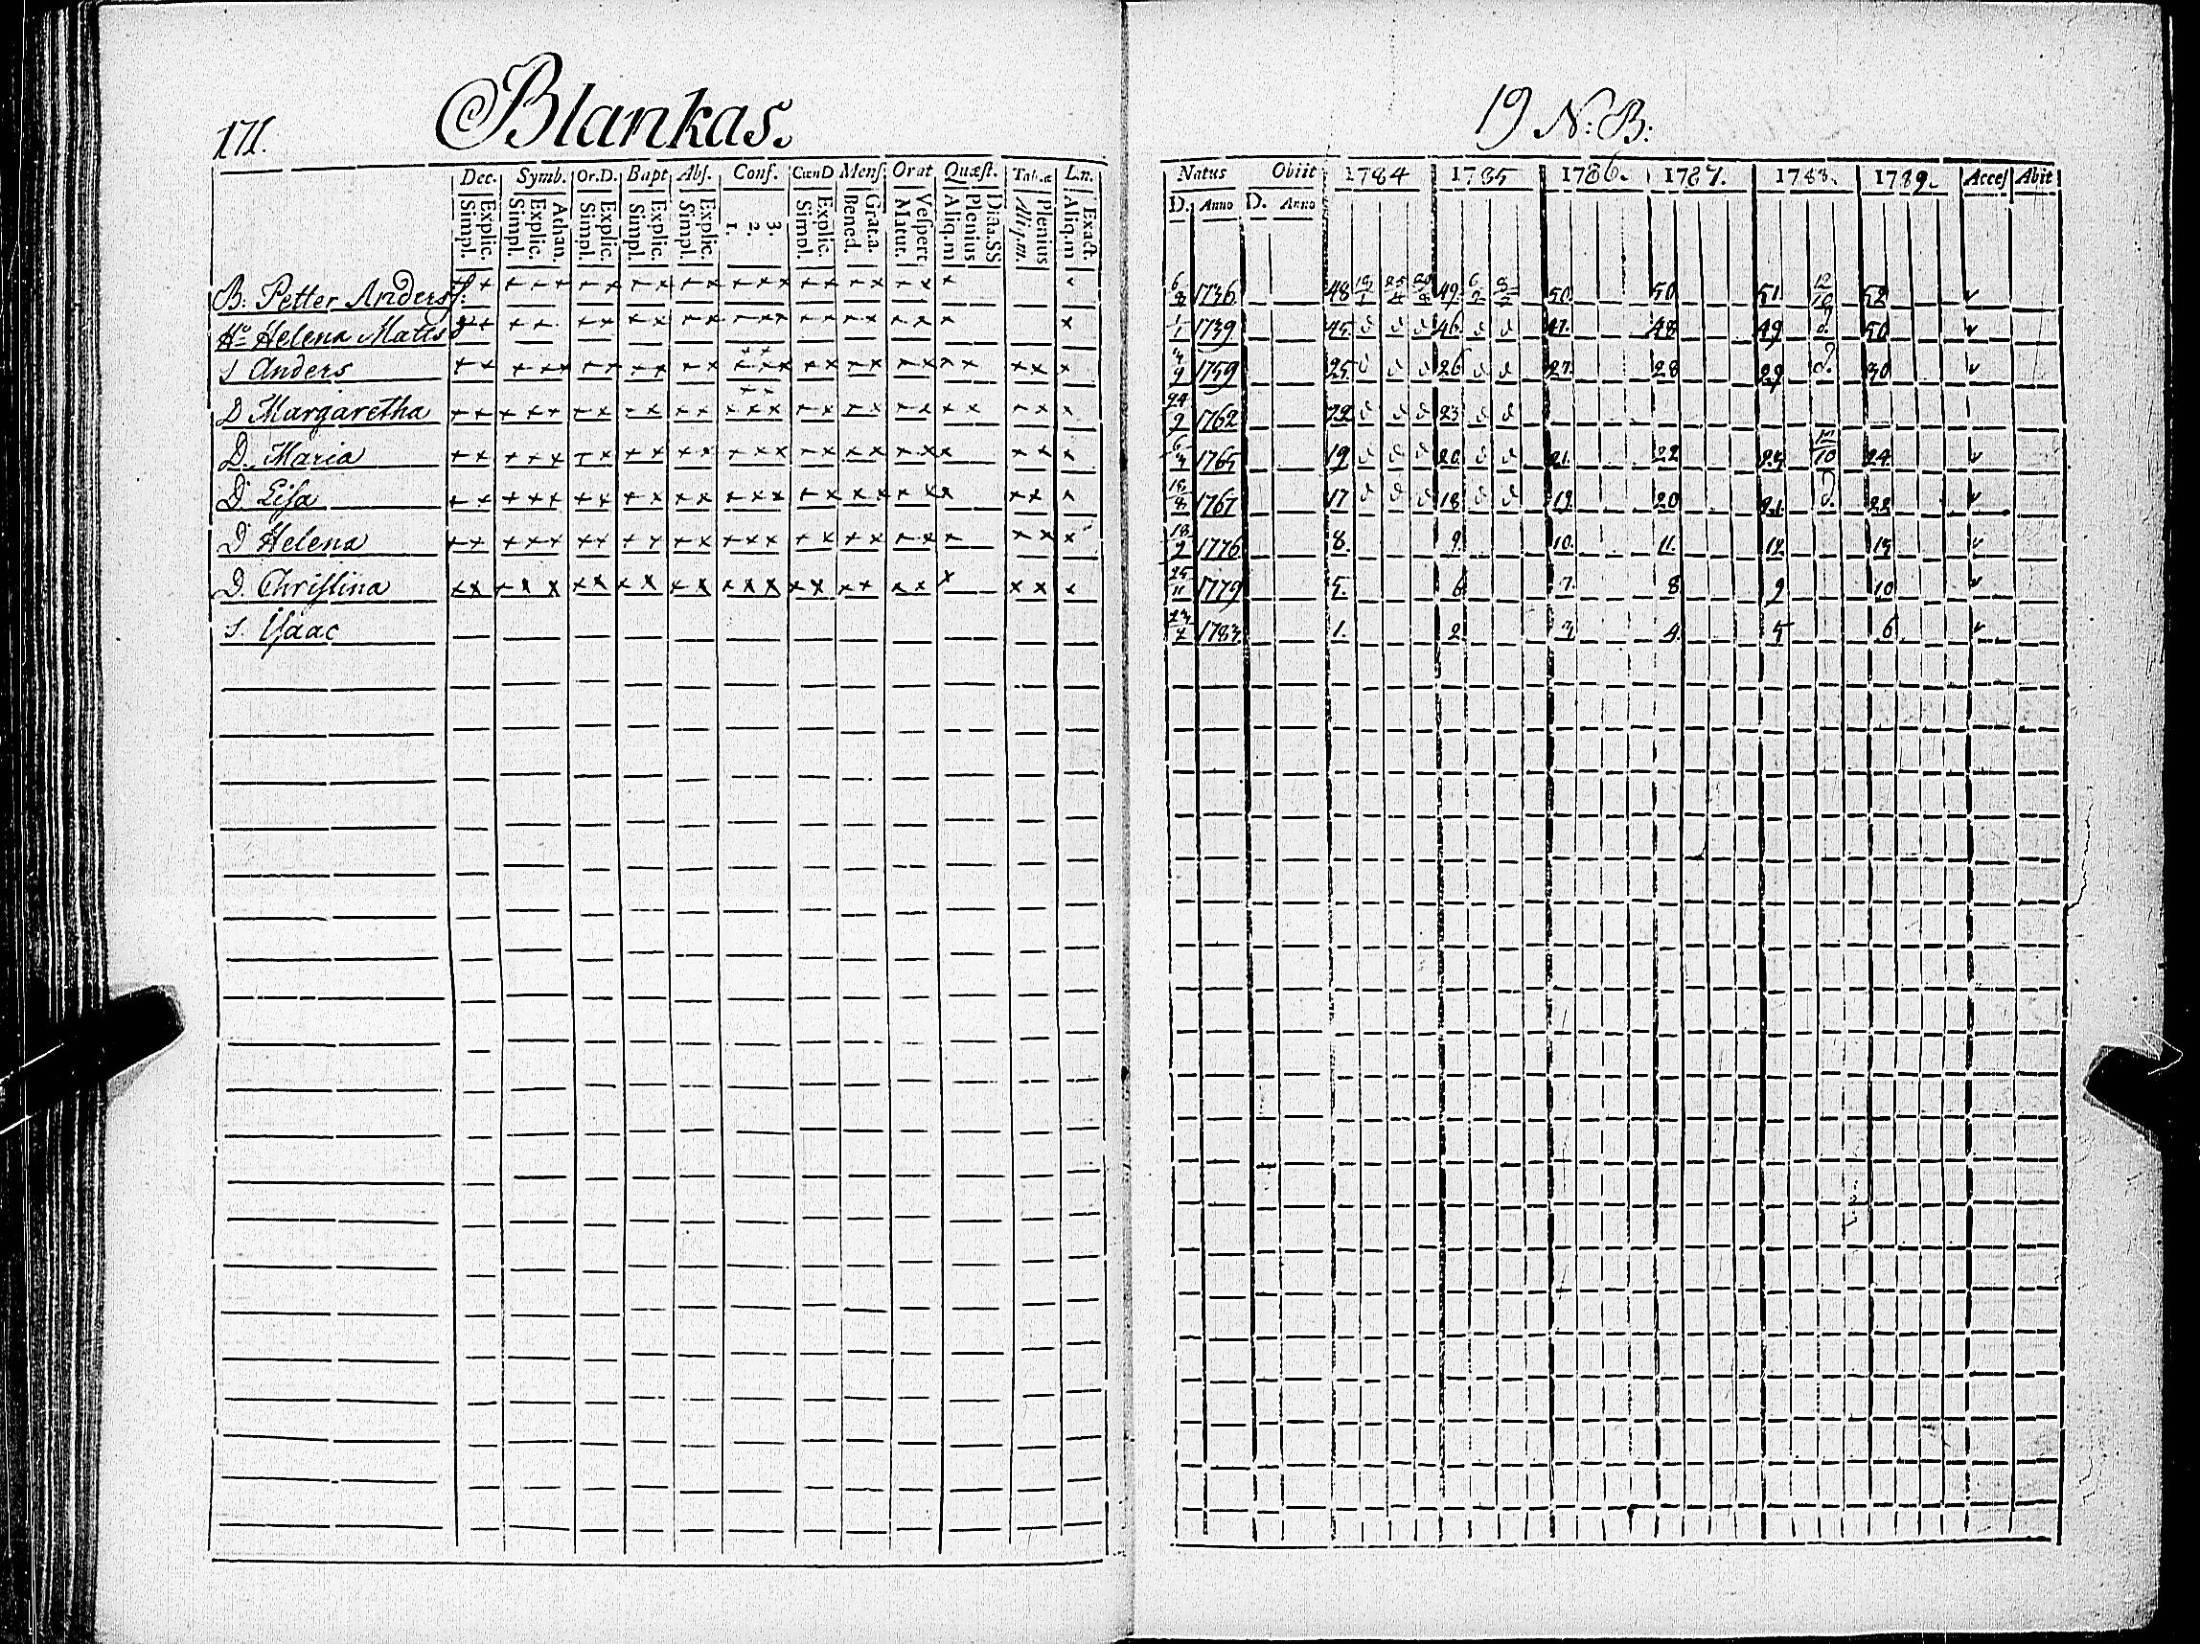 171.
Blankas.
19 N: B:
Dec. Symb. Or.D. Bapt Abs. Conf. CœnD Mens. Orat Quæst. Tab.æ L.n.
Simpl. Explic. Simpl. Explic. Athan. Simpl. Explic. Simpl. Explic. Simpl. Explic. 1. 2. 3. Simpl. Explic. Bened. Grat.a. Matut. Vespert. Aliq.m Plenius Dicta.SS. Aliq.m. Plenius Aliq.m Exact.
Natus Obiit 1784 1785 1786. 1787. 1788. 1789. Acces Abit
D. Anno D. Anno
B: Petter Anderss: 1736. 48 49 50. 50 51. 12/10 52
H:o Helena Matis dr 1/1 1739 45. 46. 47. 48 49 50
S Anders 1759 25. 26 27. 28 29 30
D Margaretha 24/9 1762 22 23
D. Maria 1765 19 20. 21. 22 23 24.
D. Lisa 1767 17 18 19. 20 21 22
D Helena 18/9 1776 8. 9. 10. 11. 12 13
D. Christina 25/11 1779 5. 6 7. 8 9 10
S. Isaac 1783. 1. 2 3 4. 5 6